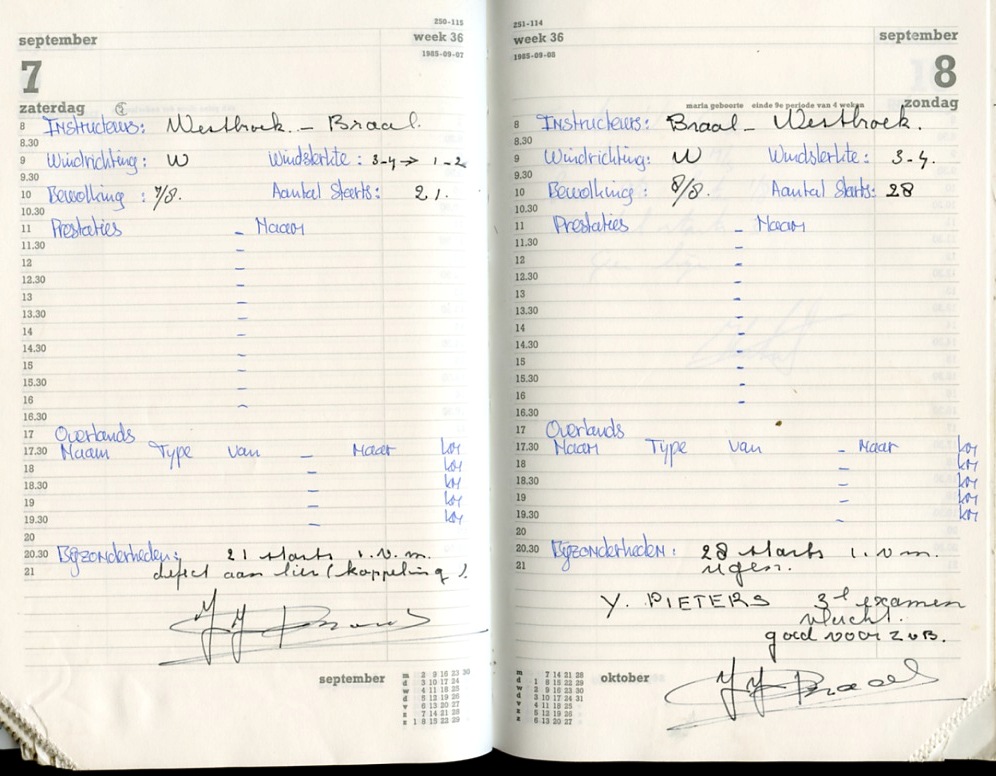 250-115
september week 36
1985-09-07
7
zaterdag
8 Instructeurs: Westbroek - Braal.
8.30
9 Windrichting: W Windsterkte: 3-4 → 1-2
9.30
10 Bewolking: 7/8. Aantal Starts: 21.
10.30
11 Prestaties - Naam
11.30 -
12 -
12.30 -
13 -
13.30 -
14 -
14.30 -
15 -
15.30 -
16 -
16.30
17 Overlands
17.30 Naam Type van - Naar km
18 - km
18.30 - km
19 - km
19.30 - km
20
20.30 Bijzonderheden: 21 starts i.v.m.
21 defect aan lier (koppeling).
september
m 2 9 16 23 30
d 3 10 17 24
w 4 11 18 25
d 5 12 19 26
v 6 13 20 27
z 7 14 21 28
z 1 8 15 22 29
251-114
week 36 september
1985-09-08
8
maria geboorte einde 9e periode van 4 weken zondag
8 Instructeurs: Braal - Westbroek.
8.30
9 Windrichting: W Windsterkte: 3-4.
9.30
10 Bewolking: 8/8. Aantal Starts: 28
10.30
11 Prestaties - Naam
11.30 -
12 -
12.30 -
13 -
13.30 -
14 -
14.30 -
15 -
15.30 -
16 -
16.30
17 Overlands
17.30 Naam Type van - Naar km
18 - km
18.30 - km
19 - km
19.30 - km
20
20.30 Bijzonderheden: 28 starts i.v.m.
21 regen.
Y. PIETERS 3e examen
vlucht.
goed voor zvb.
oktober
m 7 14 21 28
d 1 8 15 22 29
w 2 9 16 23 30
d 3 10 17 24 31
v 4 11 18 25
z 5 12 19 26
z 6 13 20 27